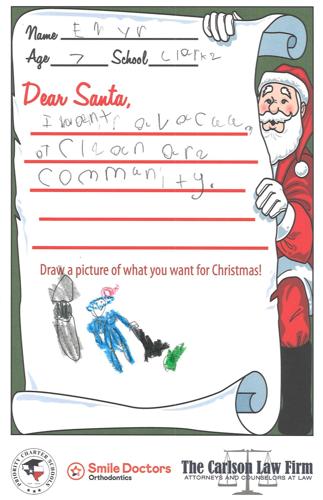 Name Enyr
Age 7 School Clarke
Dear Santa,
I want a vacuum
to clean are
community.
Draw a picture of what you want for Christmas!
PRIORITY CHARTER SCHOOLS
Smile Doctors
Orthodontics
The Carlson Law Firm
ATTORNEYS AND COUNSELORS AT LAW